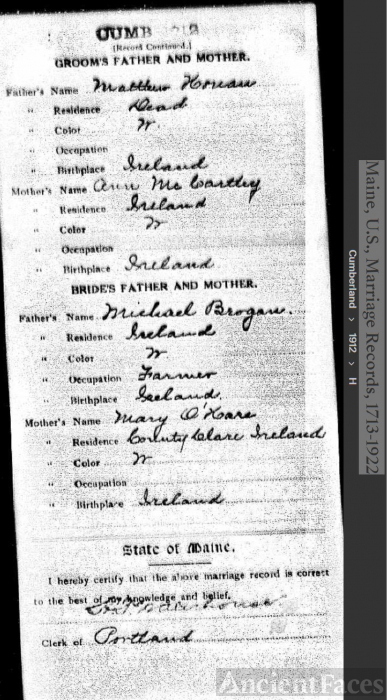 CUMB 1912
[Record Continued.]
GROOM'S FATHER AND MOTHER.
Father's Name Matthew
" Residence Dead
" Color W.
" Occupation
" Birthplace Ireland
Mother's Name Ann McCarthy
" Residence Ireland
" Color W
" Occupation
" Birthplace Ireland
BRIDE'S FATHER AND MOTHER.
Father's Name Michael Brogan.
" Residence Ireland
" Color W
" Occupation Farmer
" Birthplace Ireland.
Mother's Name Mary O'Hare
" Residence County Clare Ireland
" Color W
" Occupation
" Birthplace Ireland
State of Maine.
I hereby certify that the above marriage record is correct
to the best of my knowledge and belief.
Clerk of Portland
Maine, U.S., Marriage Records, 1713-1922
Cumberland > 1912 > H
AncientFaces